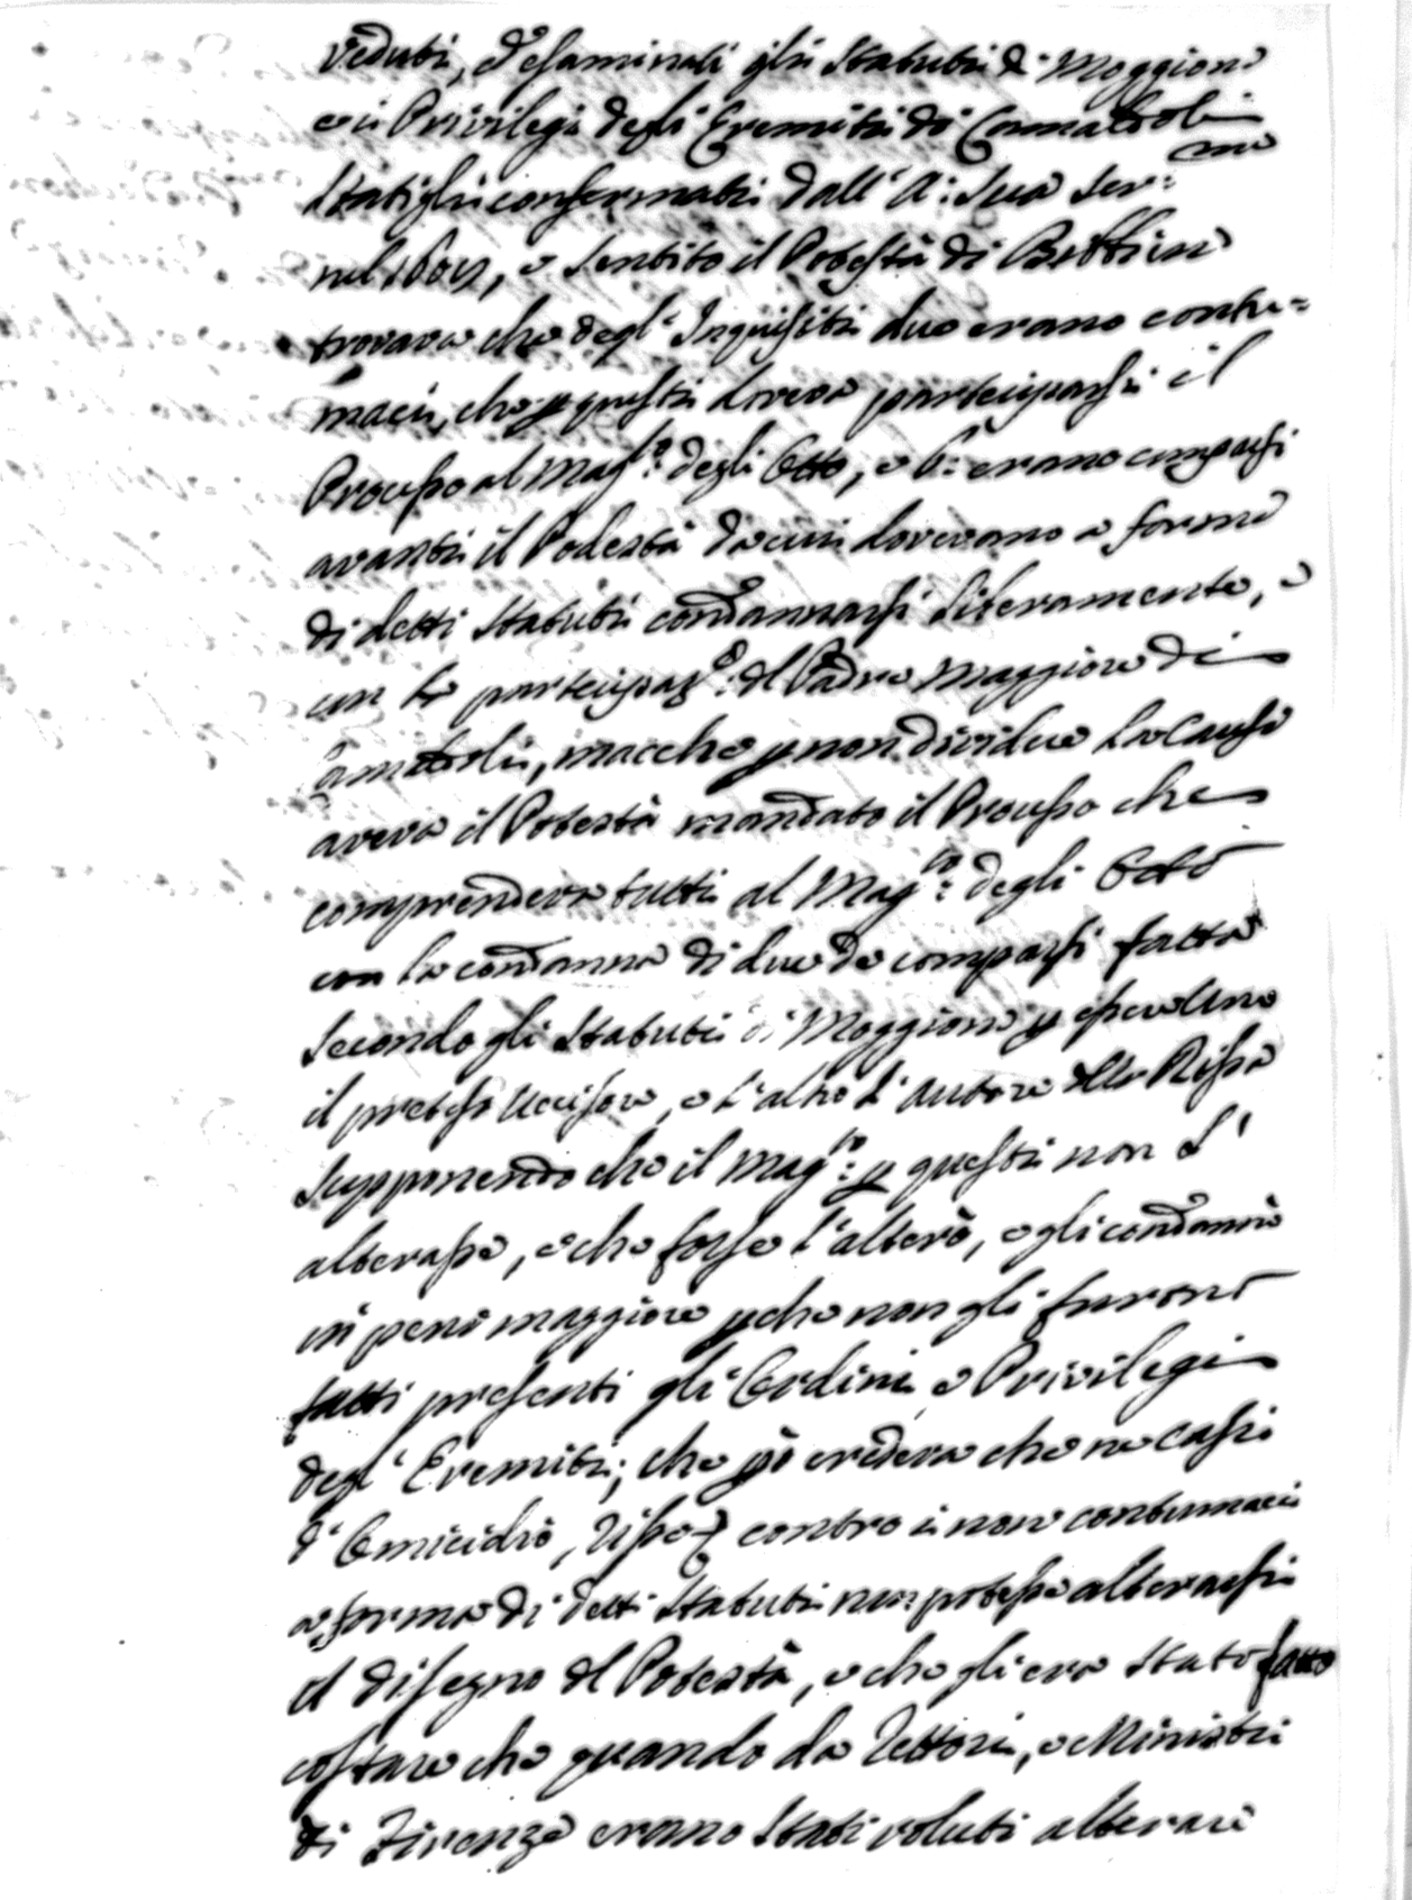 veduti, ed esaminati gli Statuti di Moggiona
e i Privilegi degli Eremiti di Camaldoli
statigli confermati dall' A: Sua Ser:ma
nel 1604, e sentito il Potestà di Bibbiena
trovava che degl' Inquisiti due erano contu=
maci, che p questi doveva parteciparsi il
Processo al Mag:to degli Otto, e 6: erano comparsi
avanti il Podestà da cui dovevano a forma
di detti Statuti condannarsi liberamente, e
con la participaz:e del Padre Maggiore di
Camaldoli, macche p non dividue la Causa
aveva il Potestà mandato il Processo che
comprendeva tutti al Mag:to degli Otto
con la condanna di due de comparsi fatta
secondo gli Statuti di Moggiona p esser uno
il preteso Uccisore, e l'altro l'autore della Rissa
supponendo che il Mag:to p questi non l'
alterasse, e che forse l'alterò, e gli condannò
in pena maggiore pche non gli furono
fatti presenti gli Ordini e Privilegi
degl' Eremiti; che pò credeva che ne casi
d' Omicidio, rissa contro i non contumaci
a forma di detti Statuti non potesse alterarsi
il disegno del Potestà, e che gli era stato fatto
costare che quando da Rettori, e Ministri
di Firenze erano stati voluti alterare